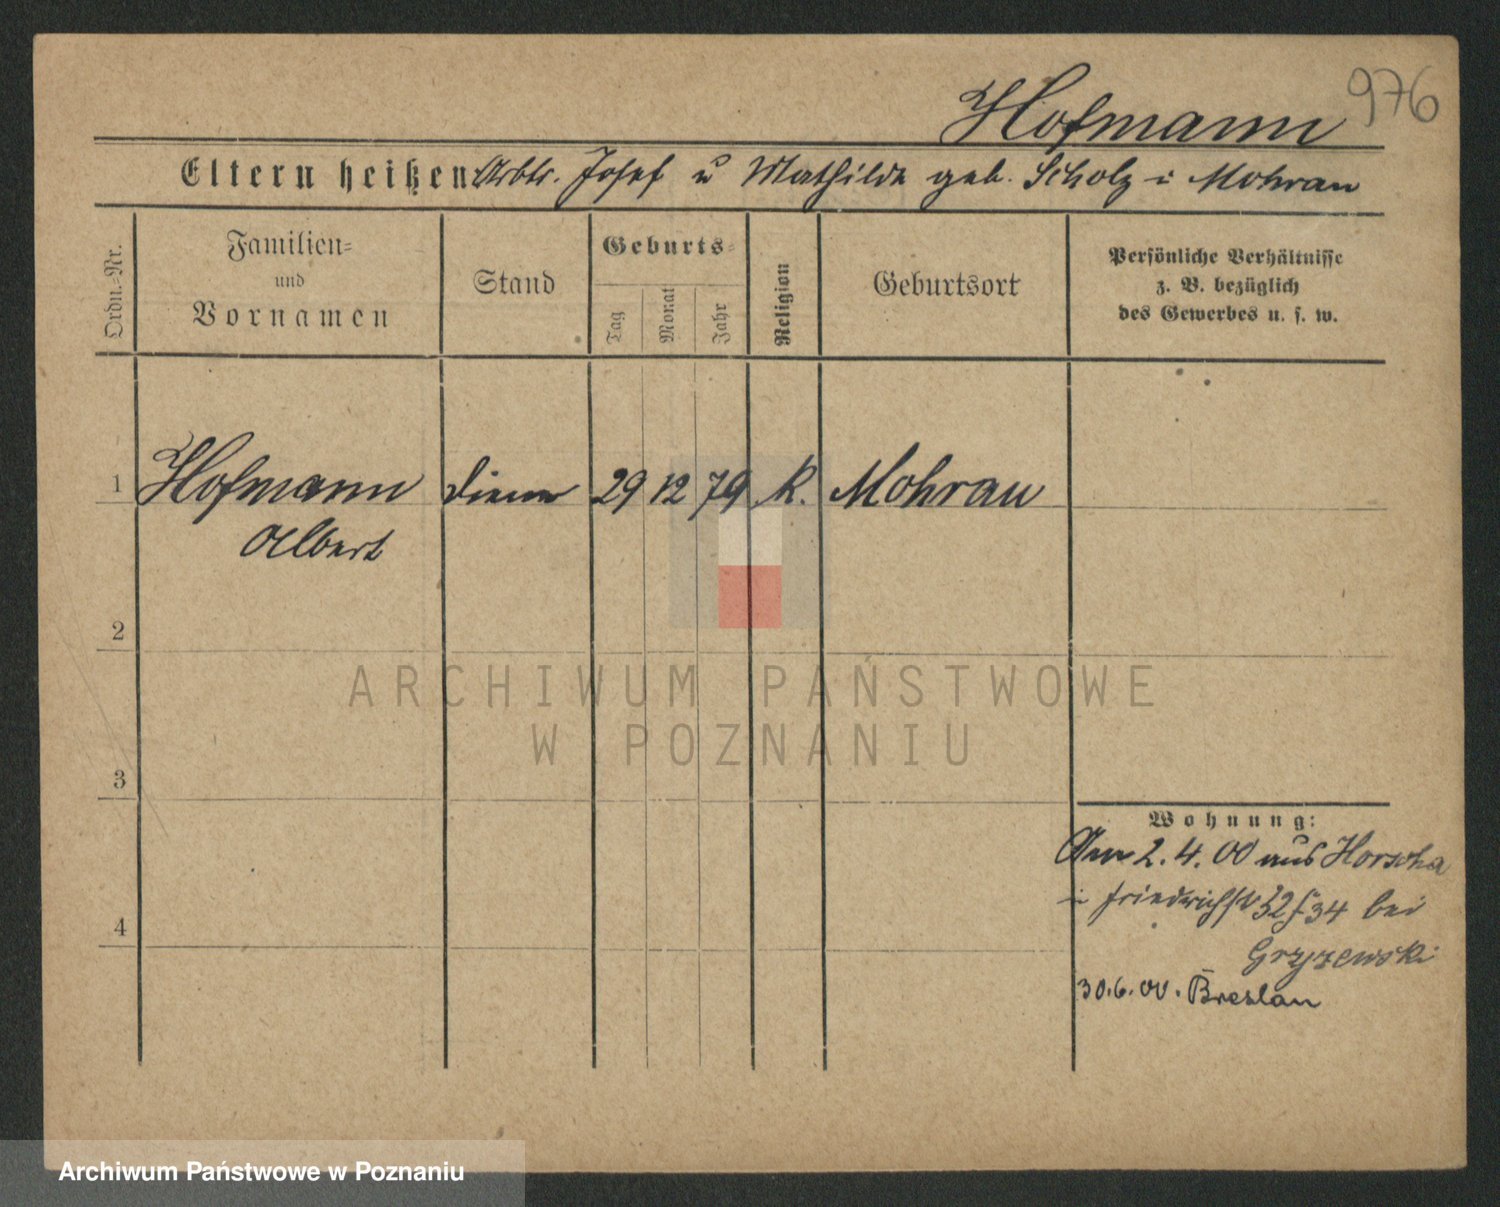 976
Hofmann
Eltern heißen Arbtr. Josef u Mathilde geb. Scholz i Mohrau
Ordn.-Nr.
Familien-
und
Vornamen
Stand
Geburts-
Tag
Monat
Jahr
Religion
Geburtsort
Persönliche Verhältnisse
z. B. bezüglich
des Gewerbes u. s. w.
1 Hofmann Diener 29 12 79 k. Mohrau
Albert
2
ARCHIWUM PAŃSTWOWE
W POZNANIU
3
Wohnung:
Am 2. 4. 00 aus Horscha
4
i Friedrichstr 32/34 bei
Gryzewski
30.6.00. Breslau
Archiwum Państwowe w Poznaniu